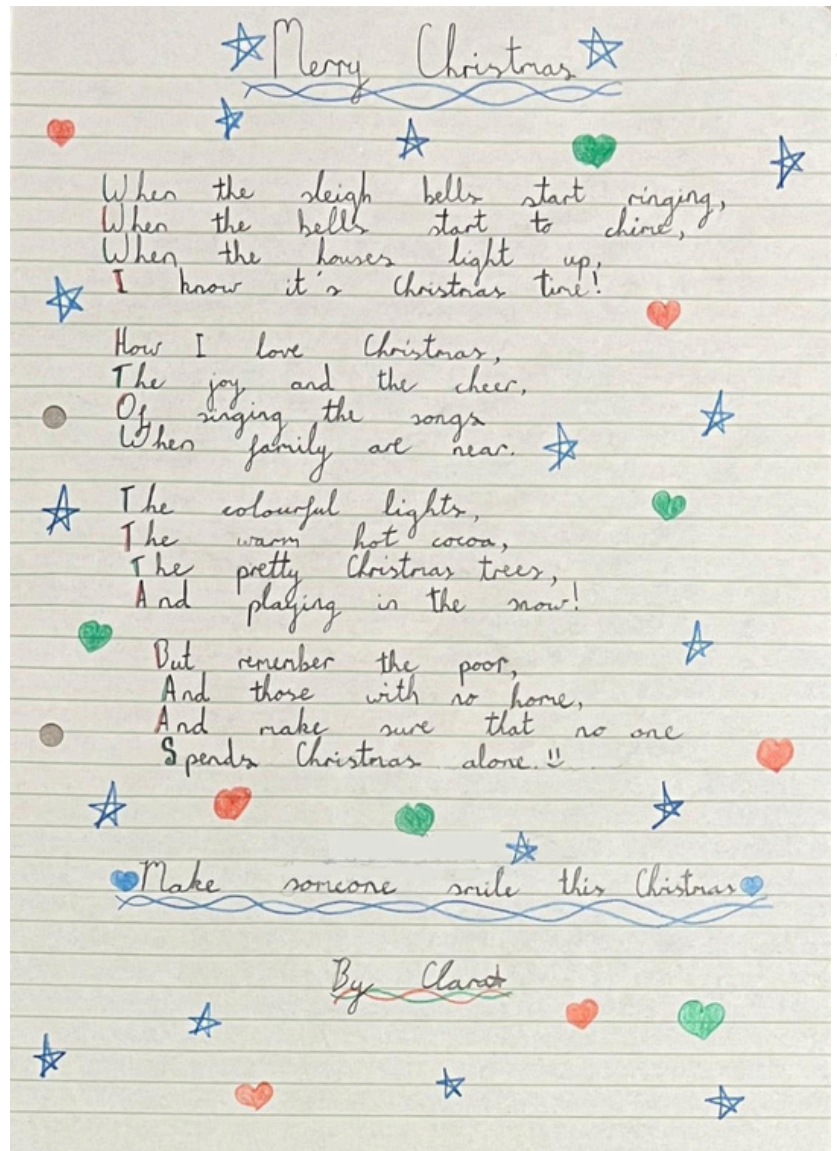 Merry Christmas
When the sleigh bells start ringing,
When the bells start to chime,
When the houses light up,
I know it's Christmas time!
How I love Christmas,
The joy and the cheer,
Of singing the songs
When family are near.
The colourful lights,
The warm hot cocoa,
The pretty Christmas trees,
And playing in the snow!
But remember the poor,
And those with no home,
And make sure that no one
Spends Christmas alone.
Make someone smile this Christmas
By Clara